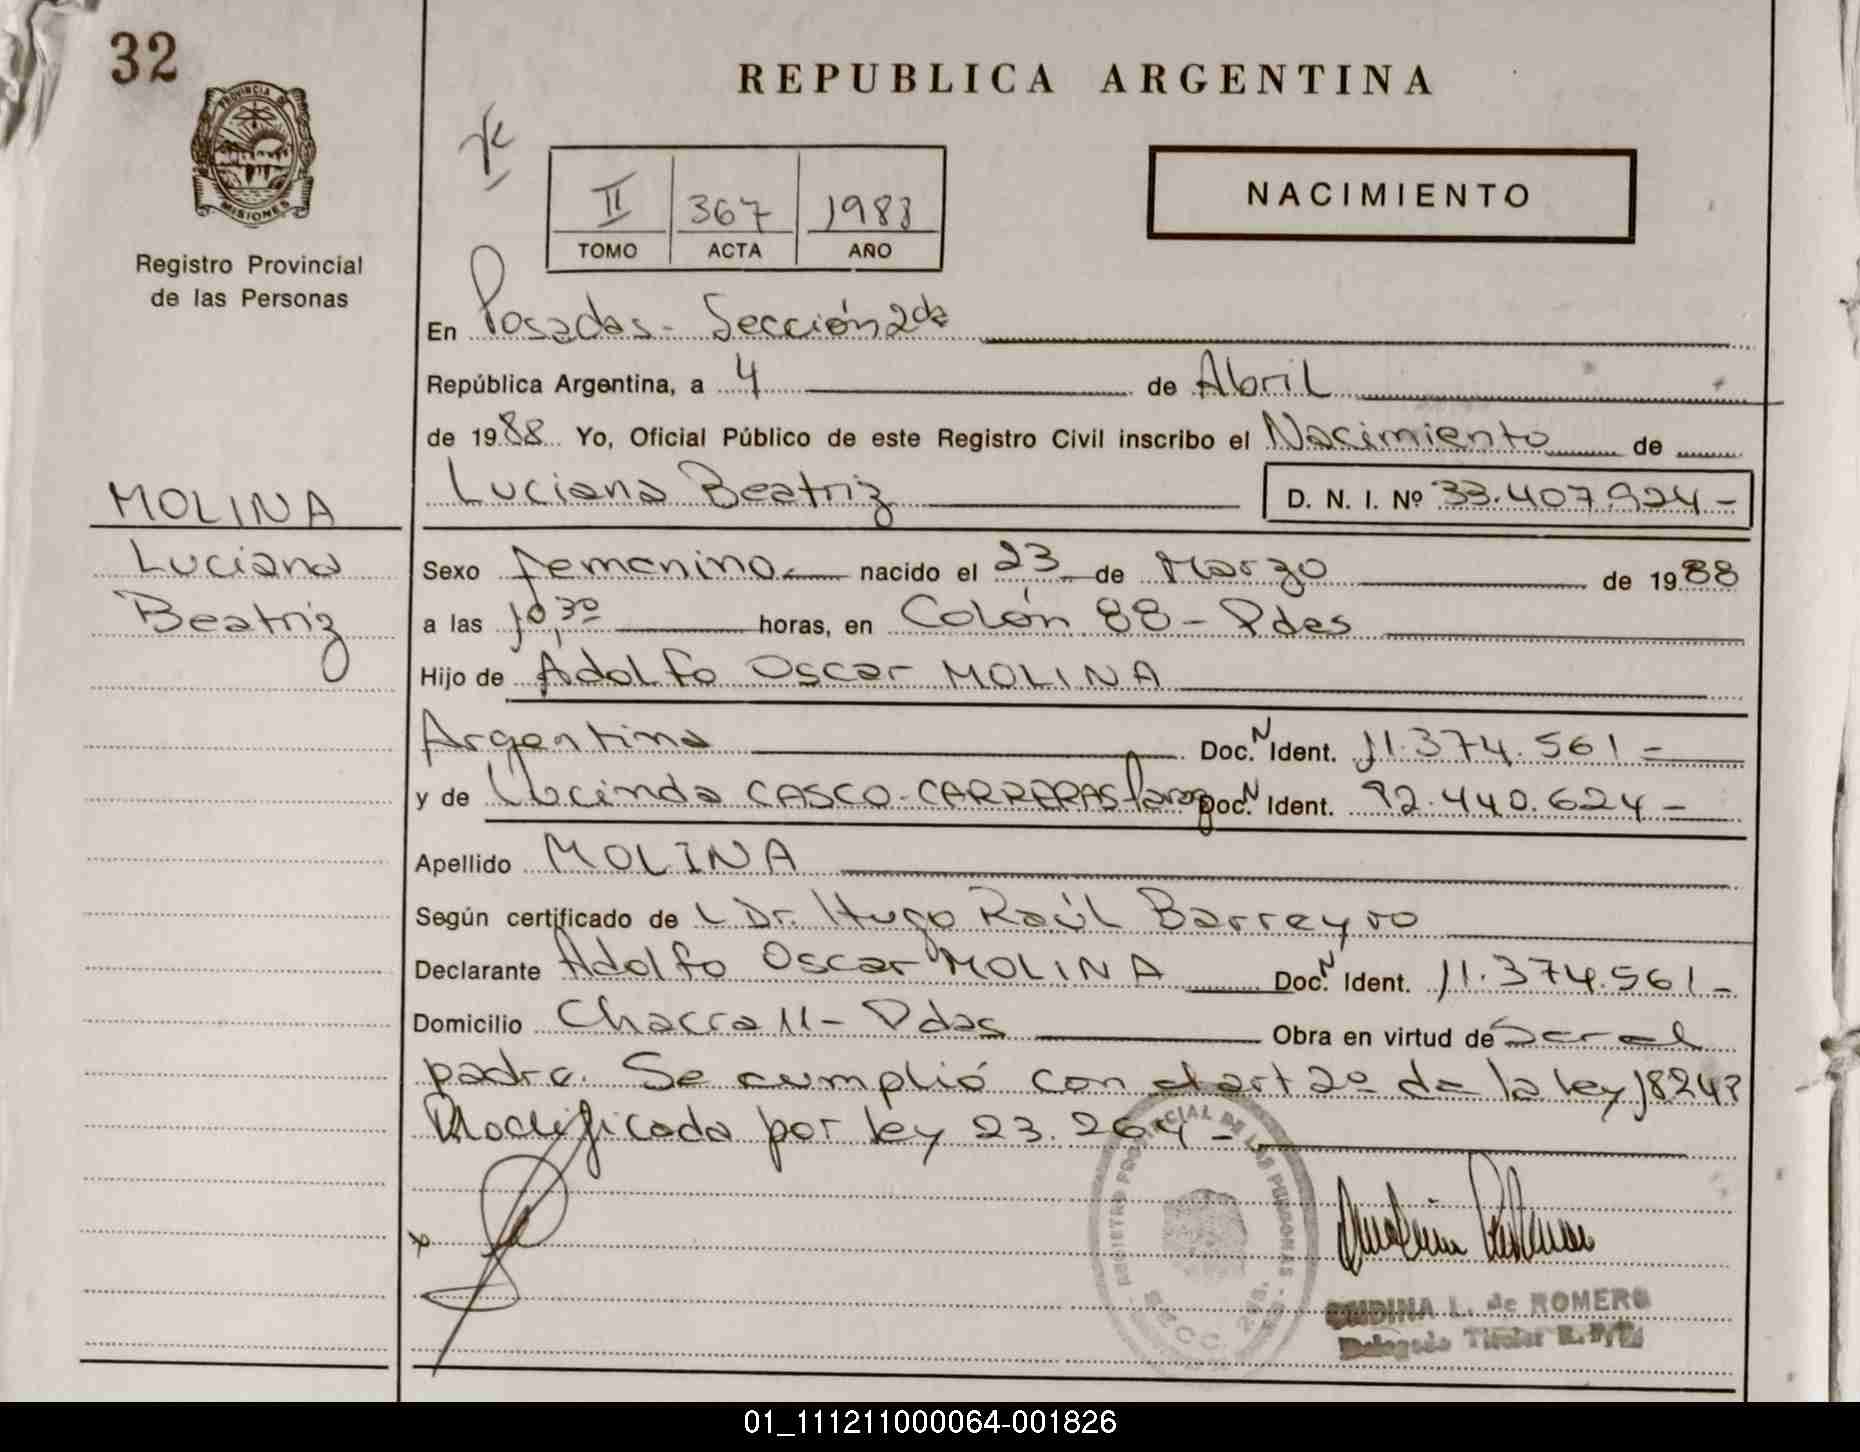 32
PROVINCIA DE
MISIONES
Registro Provincial
de las Personas
REPUBLICA ARGENTINA
II 367 1988
TOMO ACTA AÑO
NACIMIENTO
En Posadas - Sección 2da
República Argentina, a 4 de Abril
de 1988 Yo, Oficial Público de este Registro Civil inscribo el Nacimiento de
Luciana Beatriz D. N. I. Nº 33.407.924-
MOLINA
Luciana
Beatriz
Sexo femenino nacido el 23 de Marzo de 1988
a las 10,30 horas, en Colón 88 - Pdas
Hijo de Adolfo Oscar MOLINA
Argentina Doc. N Ident. 11.374.561-
y de CASCO-CARRERAS Parag Doc. N Ident. 92.440.624-
Apellido MOLINA
Según certificado de L Dr. Hugo Raúl Barreyro
Declarante Adolfo Oscar MOLINA Doc. N Ident. 11.374.561-
Domicilio Chacra 11 - Pdas Obra en virtud de Ser el
padre. Se cumplió con el art 2º de la ley 18248
Modificada por ley 23.264-
REGISTRO PROVINCIAL DE LAS PERSONAS
SECC. 2da.
L. de ROMERO
Delegado Titular
01_111211000064-001826